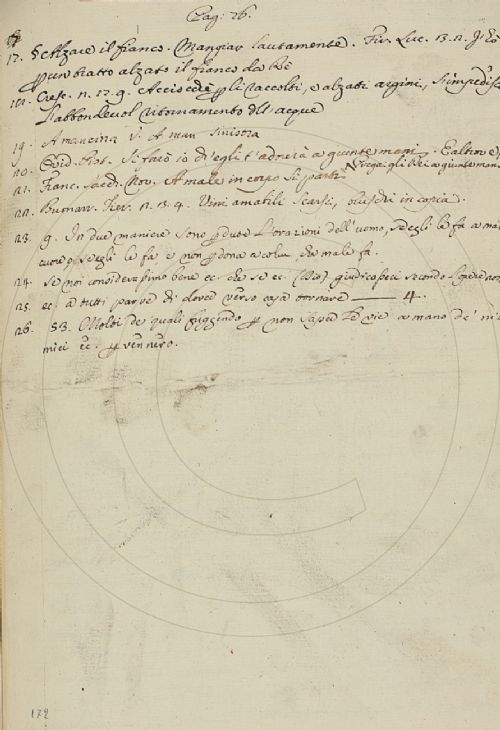 Pag: 26.
17. § Alzare il fianco. Mangiar lautamente. Fir. Luc. 13. n.
alzato il fianco da Re
18. Cresc. n. 17. 9. Acciocche gli raccolti, e alzati argini,
l'abbondevol ritornamento dell' acque
19. A mancina V. A man sinistra
20. Ovid. Pist. Si facci io ch'egli t'adorerà a giunte mani. E altrove
prega gli Dei a giunte mani
21. Franc. Sacch. Nov. A male in corpo si partì
22. Buonarr. Fier. n. 3. 4. Vini amabili scarsi, in copia.
23. 9. In due maniere sono perdute l'orazioni dell' uomo, se egli le fa a mal
cuore, o se egli le fa e non perdona a colui che mal fa.
24. Se noi considerassimo bene ec. che se ec. (Dio) giudicasseci secondo
25. ec. a tutti parve di dover verso casa tornare — 4.
26. 53. Molti de' quali fuggendo per non sapere le vie a mano de' ni
mici ec. pervennero.
172